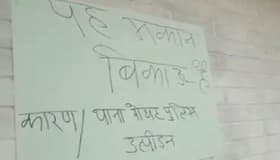 यह मकान
बिकाऊ है
कारण / थाना पुलिस
उत्पीडन